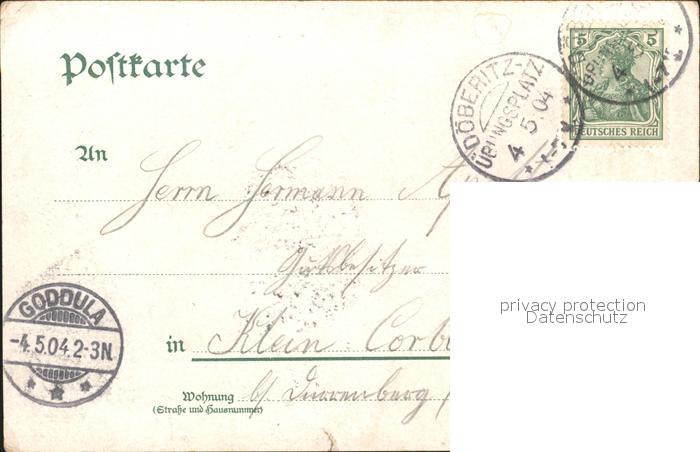 Postkarte
DÖBERITZ-
ÜBUNGSPLATZ
4 5.04
5 5
DEUTSCHES REICH
4
1-7
An
Herrn Hermann
Gutsbesitzer
GODDULA
-4.5.04.2-3N.
in Klein Corb
Wohnung b/ Dürrenberg
(Straße und Hausnummer)
privacy protection
Datenschutz